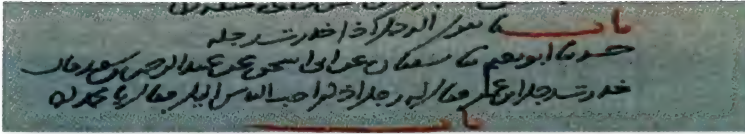 باب ما يقول الرجل اذا خدرت رجله
حدثنا ابو نعيم ثنا سفيان عن ابى اسحق عن عبد الرحمن بن سعد قال
خدرت رجل ابن عمر فقال له رجل اذكر احب الناس اليك فقال يا محمد
باب